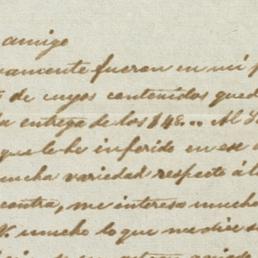 amigo
vamente fueron en mi p
de cuyos contenidos qued
a entrega de los 148... Al S
que le he inferido en ese a
mucha variedad respecto á l
contra, me interesa mucho
mucho lo que me dice s